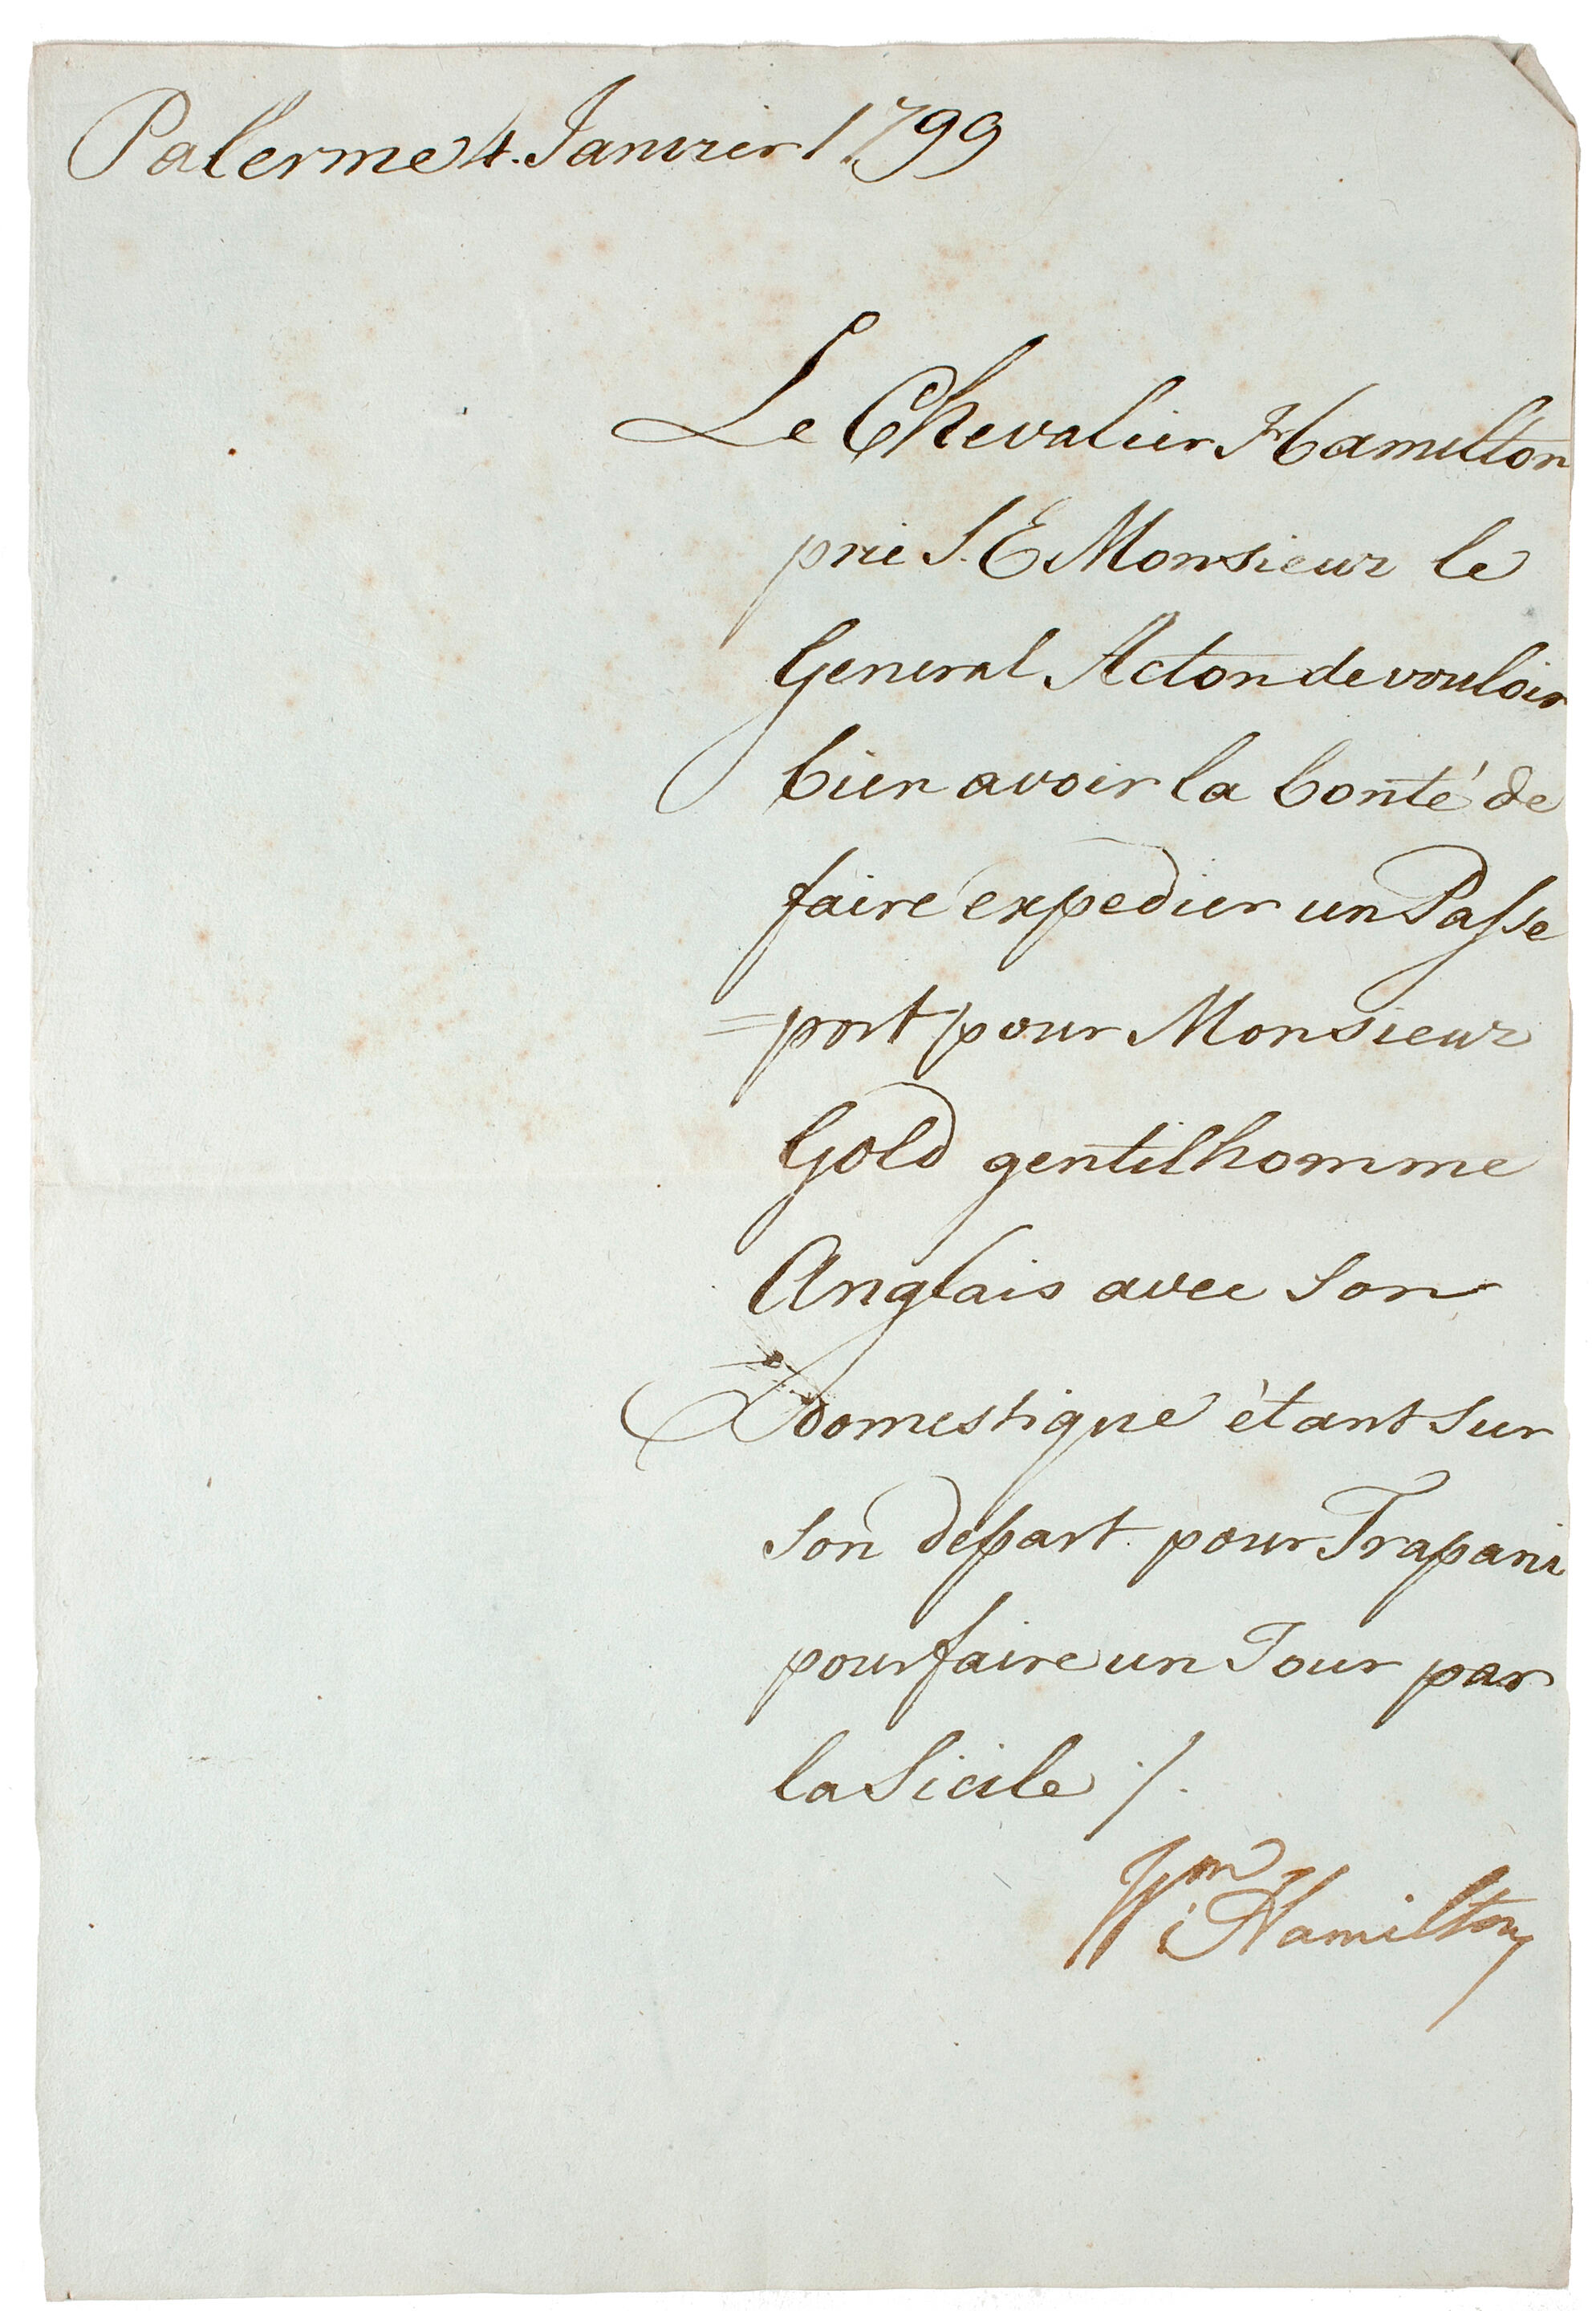 Palerme 4. Janvier 1799
Le Chevalier Hamilton
prie S. E Monsieur le
General Acton de vouloir
bien avoir la bonté de
faire expedier un Passe
=port pour Monsieur
Gold gentilhomme
Anglais avec son
domestique ètant sur
son depart pour Trapani
pour faire un Tour par
la Sicile ./.
Wm Hamilton